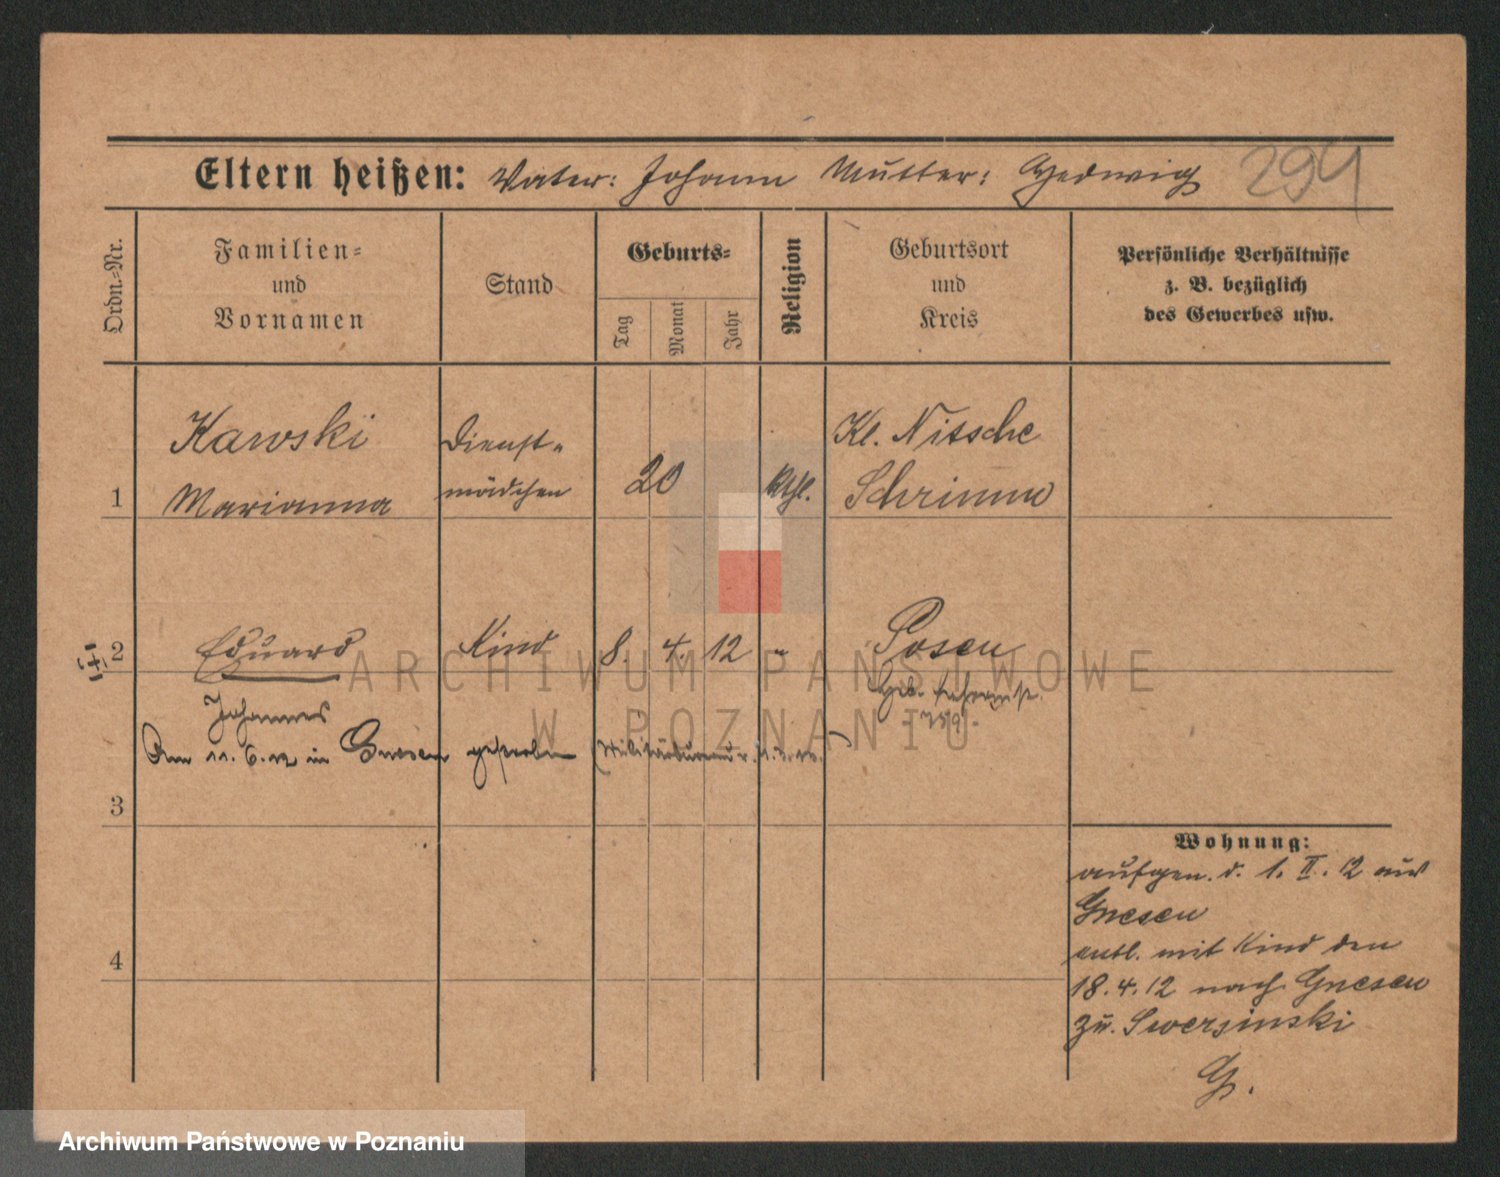 Eltern heißen: Vater: Johann Mutter: Hedwig 294
Ordn.=Nr.
Familien=
und
Vornamen
Stand
Geburts=
Tag
Monat
Jahr
Religion
Geburtsort
und
Kreis
Persönliche Verhältnisse
z. B. bezüglich
des Gewerbes usw.
1
Kawski
Marianna
Dienst=
mädchen
20
kthl.
Kl. Nitsche
Schrimm
2
Eduard
Kind
8. 4. 12
"
Posen
Johannes
Am 11. 6. 12 in Gnesen gestorben (Militärbureau
3
4
Wohnung:
aufgen. d. 1. II. 12 aus
Gnesen
entl. mit Kind den
18. 4. 12 nach Gnesen
zu. Swersinski
G.
ARCHIWUM PAŃSTWOWE
W POZNANIU
Archiwum Państwowe w Poznaniu